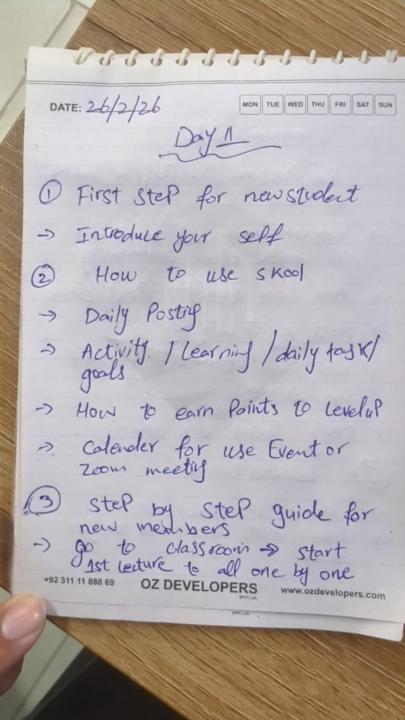 DATE: 26/2/26
MON TUE WED THU FRI SAT SUN
Day 1
① First step for new student
→ Introduce your self
② How to use skool
→ Daily Posting
→ Activity / learning / daily task/
goals
→ How to earn Points to levelup
→ Calender for use Event or
Zoom meeting
③ Step by step guide for
new members
→ go to classroom → start
1st lecture to all one by one
+92 311 11 888 69
OZ DEVELOPERS
www.ozdevelopers.com